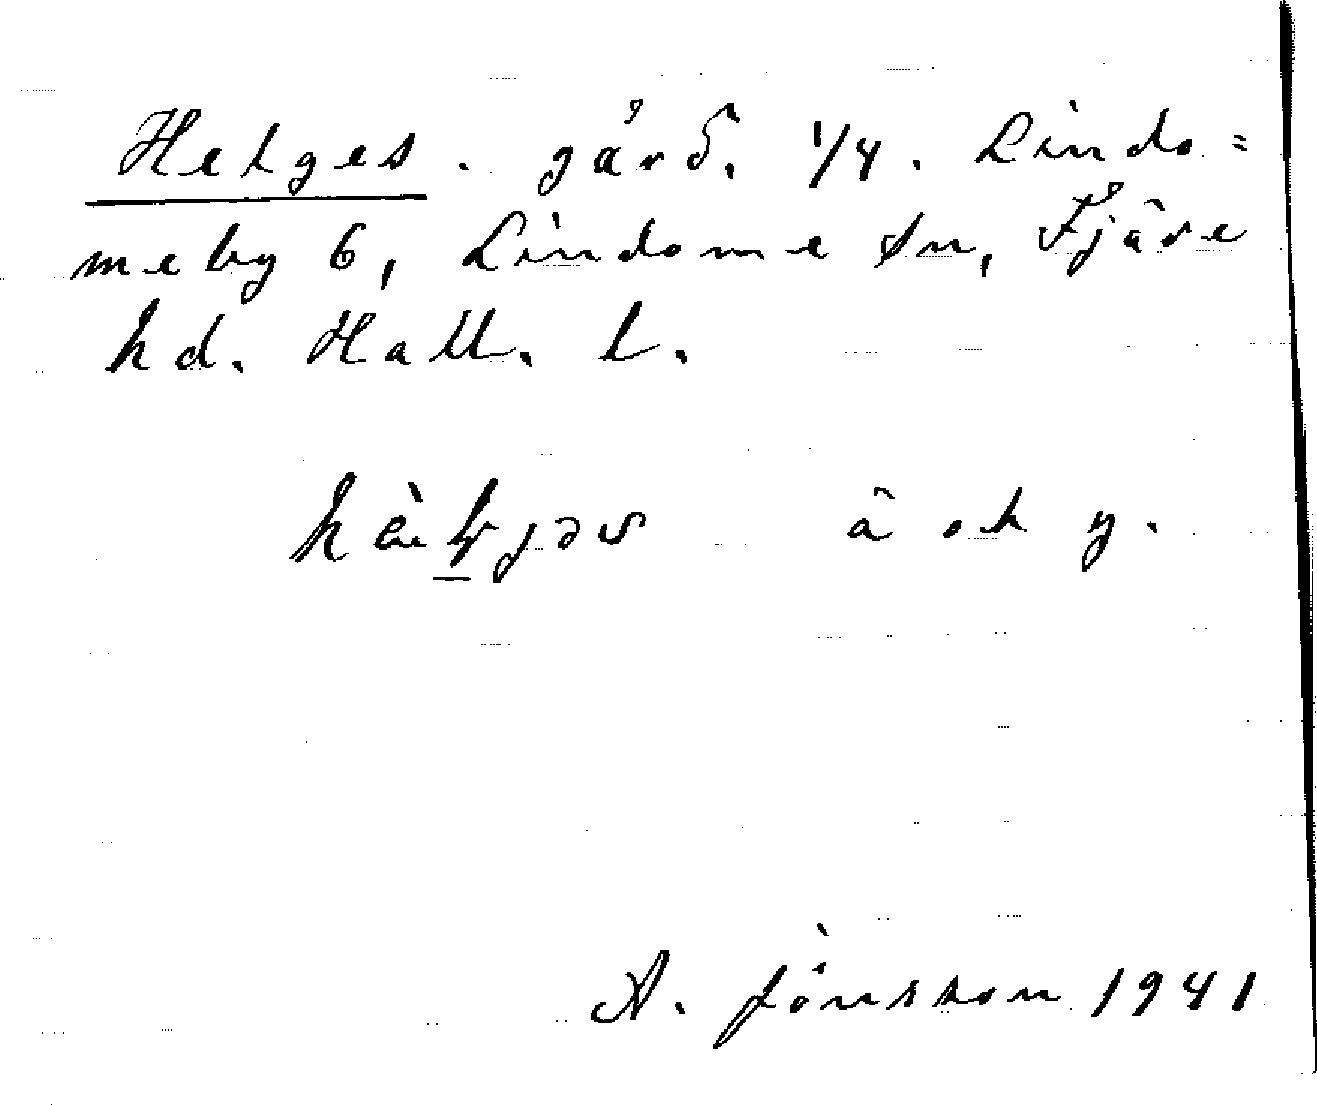 Helges. gård. 1/4. Lindo=
meby 6, Lindome sn, Fjäre
hd. Hall. l.
ä ok y.
A. Jönsson 1941